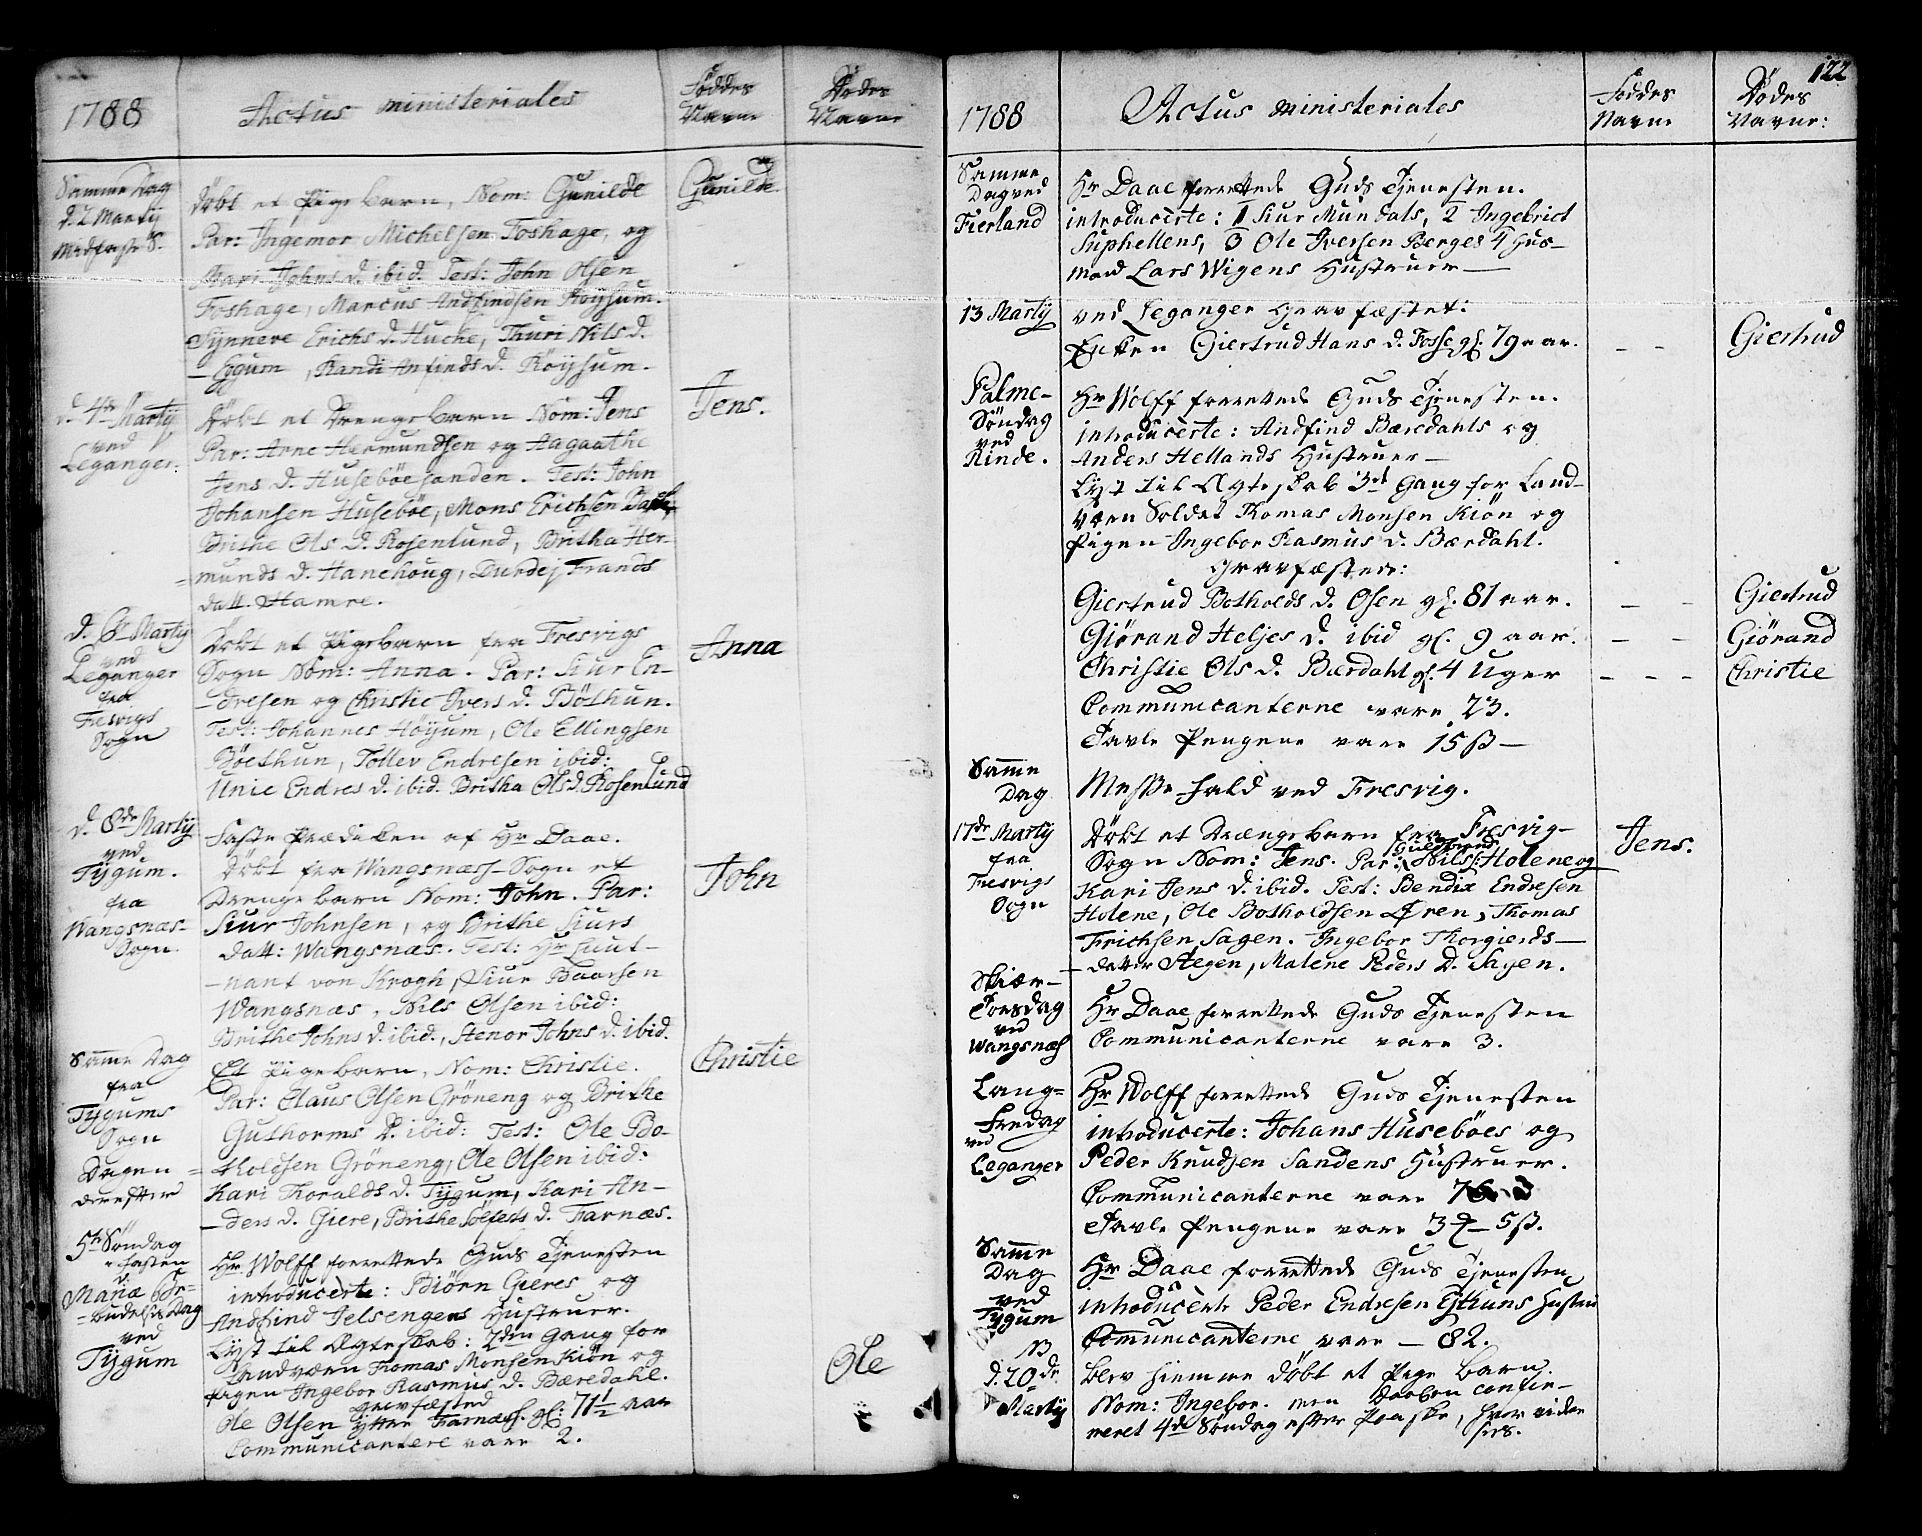 1788
Actus ministeriales
Føddes Navne
Dødes Navne
Samme Dag
d. 2 Martij
Midfaste S.
Døbt et Pigebarn, Nom: Gunilde
Gunilde
Par: Ingemor Michelsen Foshage, og
Kari Johns d. ibid. Test: John Olsen
Foshage, Marcus Andfindsen Röysum.
Synneve Erichs d. Huche, Thuri Nils d.
Tygum, Randi Anfinds d. Röysum.
d. 4de Martij
ved
Leganger.
Døbt et Drengebarn Nom: Jens
Jens.
Par: Arne Hermundsen og Aagaathe
Jens d. Huseböesanden. Test: John
Johansen Huseböe, Mons Erichsen
Brithe Ols d. Rosenlund, Britha Her-
munds d. Hanehoug, Durdej Frands
datt. Hamre.
d. 6te Martij
ved
Leganger
fra
Fresvigs
Sogn
Døbt et Pigebarn fra Fresvigs
Anna
Sogn Nom: Anna. Par: Siur En-
-dresen og Christie Ivers d. Böthun.
Test: Johannes Höyum, Ole Ellingsen
Böethun, Tollev Endresen ibid:
Unie Endres d. ibid. Britha Ols d. Rosenlund
d. 8de Martij
ved
Tygum.
fra
Wangsnæs-
Sogn.
Faste Prædiken af Hr Daae.
Døbt fra Wangsnæss-Sogn et
Drengebarn Nom: John. Par:
John
Siur Johnsen, og Brithe Siurs
datt: Wangsnæs. Test: Hr Lieut-
-nant von Krogh, Siur Baarsen
Wangsnæs, Nils Olsen ibid:
Brithe Johns d. ibid., Stenor Johns d. ibid.
Samme Dag
fra
Tygums
Sogn
Dagen
derefter
Et Pigebarn, Nom: Christie.
Christie
Par: Claus Olsen Gröneng og Brithe
Guthorms d. ibid: Test: Ole Bo-
tholdsen Gröneng, Ole Olsen ibid:
Kari Thoralds d. Tygum, Kari An-
-ders d. Giere, Brithe Solfests d. Farnæs.
5te Søndag
i Fasten
Mariæ Be-
budelses Dag
ved
Tygum
Hr Wolff forrettede Guds Tjenesten
introducerte: Biörn Gieres og
Andfind Jelsengens Hustruer.
Lyst til Ægteskab: 2den Gang for
Landværn Thomas Monsen Kiön og
Pigen Ingebor Rasmus d. Bæredahl.
gravfæsted
Ole Olsen Ytter Farnæss. gl: 71 1/2 aar
Ole
Communicantere vare 2.
122
1788
Actus ministeriales
Føddes Navne
Dødes Navne:
Samme
Dag ved
Fierland
Hr Daae forrettede Guds Tjenesten.
introducerte: 1 Siur Mundals, 2 Ingebrict
Suphellens, 3 Ole Iversen Berges 4 Hus-
mand Lars Wigens Hustruer —
13 Martij
ved Leganger Gravfæstet:
Enken Giertrud Hans d. Fosse gl. 79 aar.
Giertrud
Palme-
Søndag
ved
Rinde.
Hr Wolff forrettede Guds Tjenesten.
introducerte: Andfind Bæredahls og
Anders Hellands Hustruer —
Lyst til Ægteskab 3de Gang for Land-
værn Soldat Thomas Monsen Kiön og
Pigen Ingebor Rasmus d. Bærdahl.
Gravfæstede:
Giertrud Botholds d. Olsen gl. 81 aar.
Giertrud
Giörand Heljes d. ibid gl. 9 aar.
Giörand
Christie Ols d. Bærdahl gl. 4 Uger
Christie
Communicanterne vare 23.
Tavle Pengene vare 15 ß —
Samme
Dag
Messe Fald ved Fresvig.
17de Martij
fra
Fresvigs
Sogn
Døbt et Drængebarn fra Fresvig-
Jens.
Sogn Nom: Jens. Par: Nils Holene og
Kari Jens d. ibid. Test: Bendix Endresen
Holene, Ole Botholdsen Øren, Thomas
Erichsen Sagen. Ingebor Thorgierds—
datter Stegen, Malene Peders d. Sagen.
Skiær-
Torsdag
ved
Wangsnæss
Hr Daae forrettede Guds Tjenesten
Communicanterne vare 3.
Lang-
Fredag
ved
Leganger
Hr Wolff forrettede Guds Tjenesten
introducerte: Johans Huseböes og
Peder Knudsen Sandens Hustruer.
Communicanterne vare
Tavle Pengene vare 3 - 5 ß.
Samme
Dag
ved
Tygum
Hr Daae forrettede Guds Tjenesten
introducerte Peder Endresen Esthuns Hustru
Communicanterne vare — 82.
NB
d. 20de
Martij
blev hiemme døbt et Pige Barn
Nom: Ingebor. men Daaben confir-
meret 4de Søndag efter Paaske, hvor videre
sees.